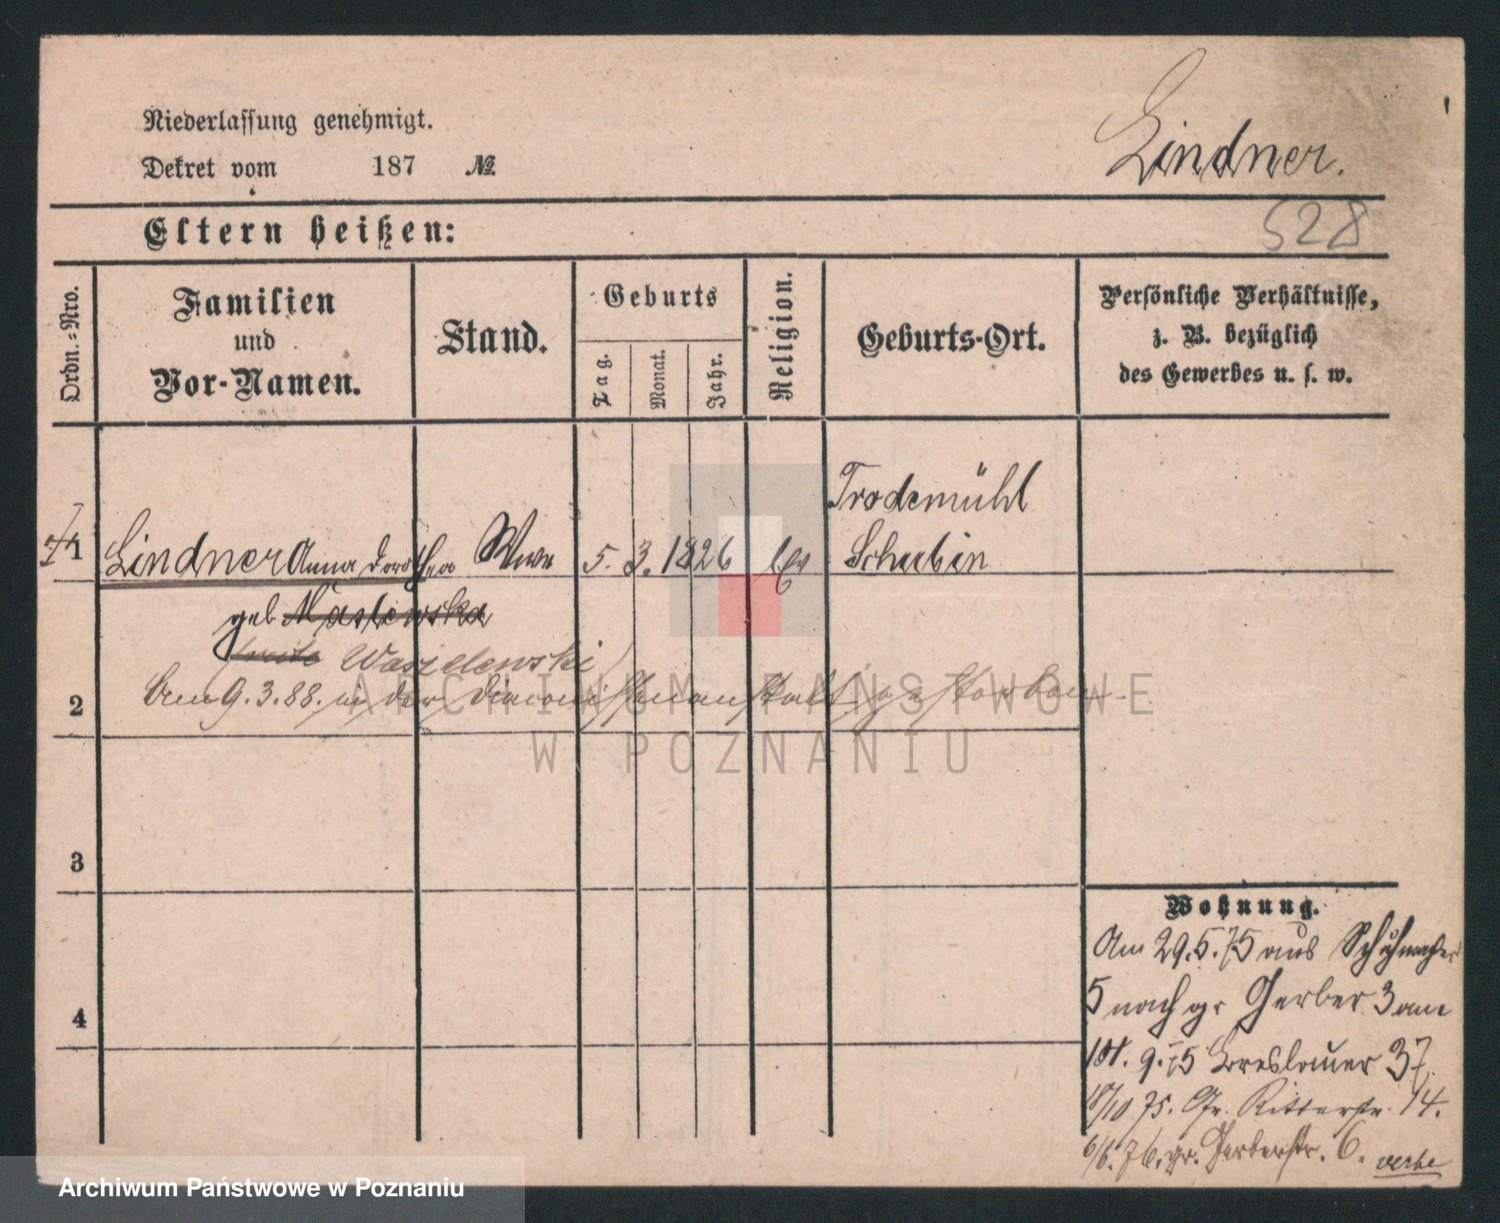 Niederlassung genehmigt.
Dekret vom 187 №
Lindner.
528
Eltern heißen:
Ordn.-Nro.
Familien
und
Vor-Namen.
Stand.
Geburts
Tag.
Monat.
Jahr.
Religion.
Geburts-Ort.
Persönliche Verhältnisse,
z. B. bezüglich
des Gewerbes u. s. w.
1 Lindner Anna Dorothea Wwe 5. 3. 1826 ev Trodemühl
Schubin
geb Maslowska
Waszelewski
2 9.3.88. in der Diaconissenanstalt gestorben.
3
4
Wohnung.
Am 29.5.75 aus Schuhmacher
5 nach gr Gerber 3 am
9.75 Breslauer 37.
18/10 75. Gr. Ritterstr. 14.
6/6. 76. gr. Gerberstr. 6.
ARCHIWUM PAŃSTWOWE
W POZNANIU
Archiwum Państwowe w Poznaniu